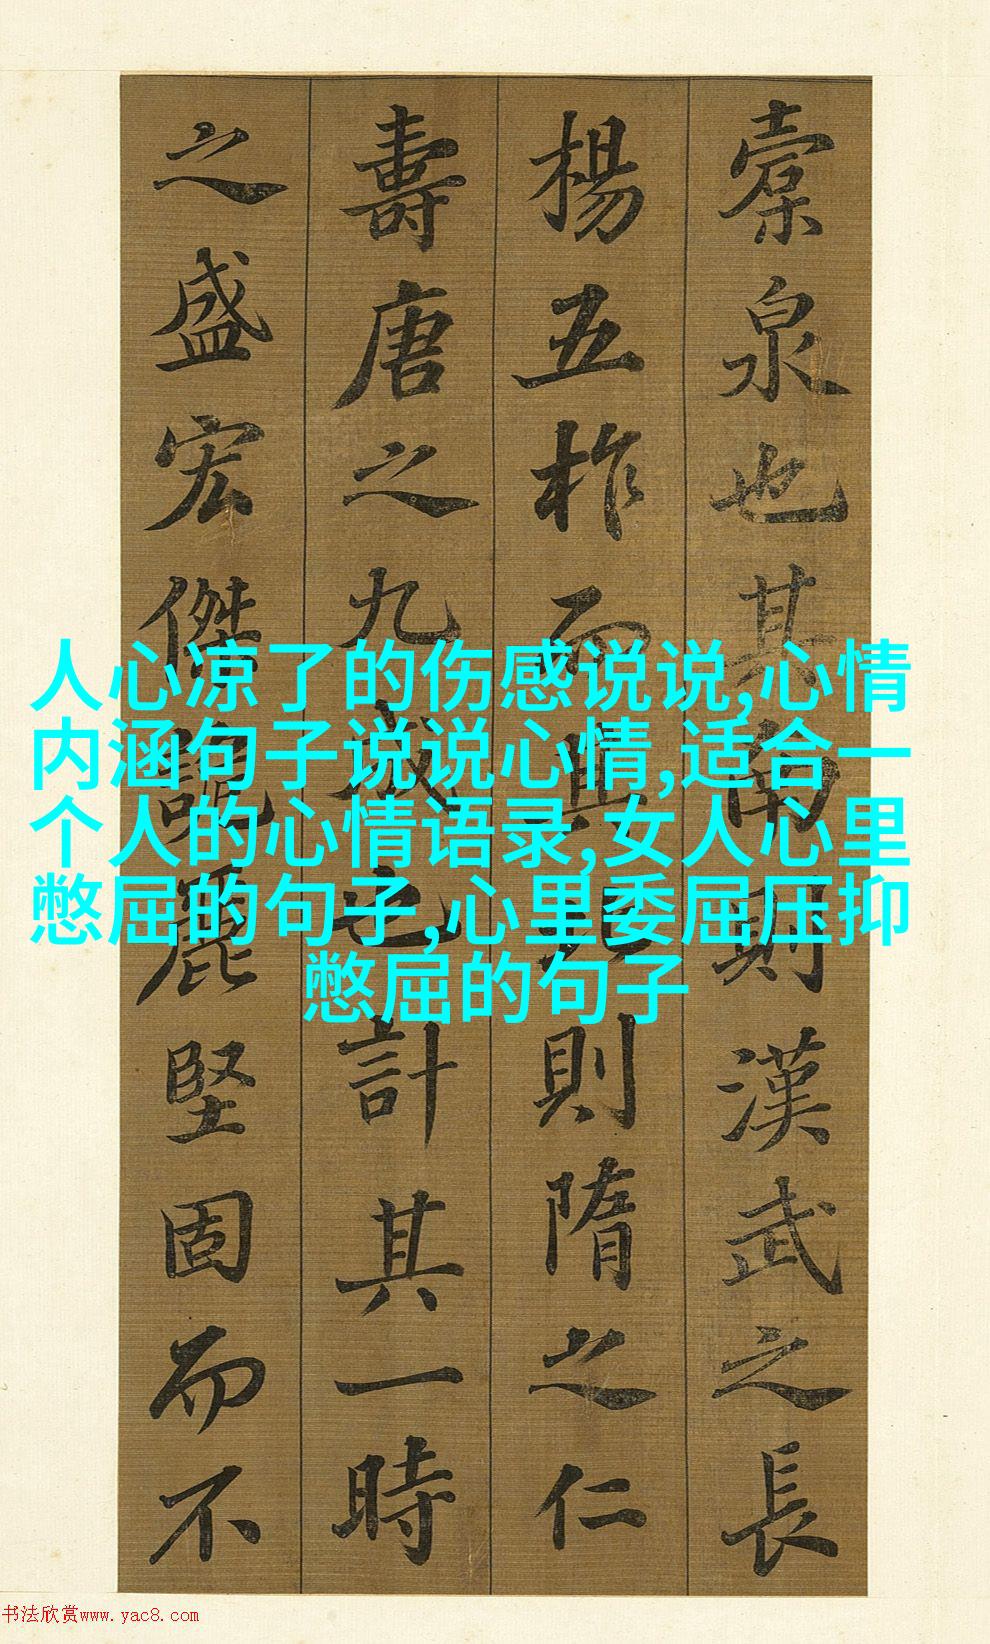 橐泉也其南則漢武之長
楊五柞而其北則隋之仁
壽唐之九成也計其一時
之盛宏傑詭麗堅固而不
人心凉了的伤感说说,心情
内涵句子说说心情,适合一
个人的心情语录,女人心里
憋屈的句子,心里委屈压抑
憋屈的句子
书法欣赏www.yac8.com